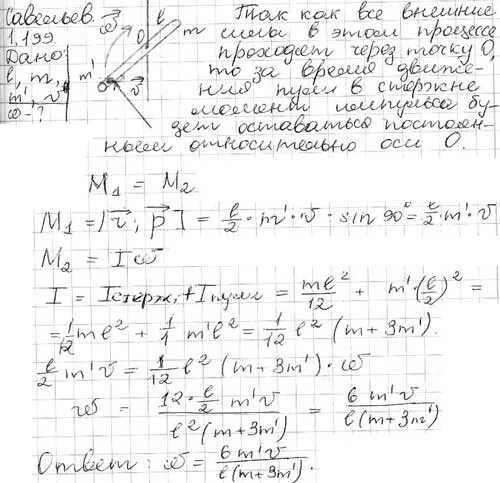 Савельев.
1.199
Дано:
l, m,
m', v
ω - ?
ω l
O m
m' v
Так как все внешние
силы в этом процессе
проходят через точку O,
то за время движе-
ния пули в стержне
момент импульса бу-
дет оставаться постоян-
ным относительно оси O.
M₁ = M₂
M₁ = |[r⃗; p⃗]| = l/2 · m' · v · sin 90° = l/2 · m' v
M₂ = I ω
I = Iстерж. + Iпули = ml²/12 + m' · (l/2)² =
= 1/12 ml² + 1/1 m'l² = 1/12 l² (m + 3m').
l/2 m' v = 1/12 l² (m + 3m') · ω
ω = (12 · l/2 m' v)/(l² (m + 3m')) = 6 m' v/(l (m + 3m'))
Ответ: ω = 6 m' v/(l (m + 3m')).